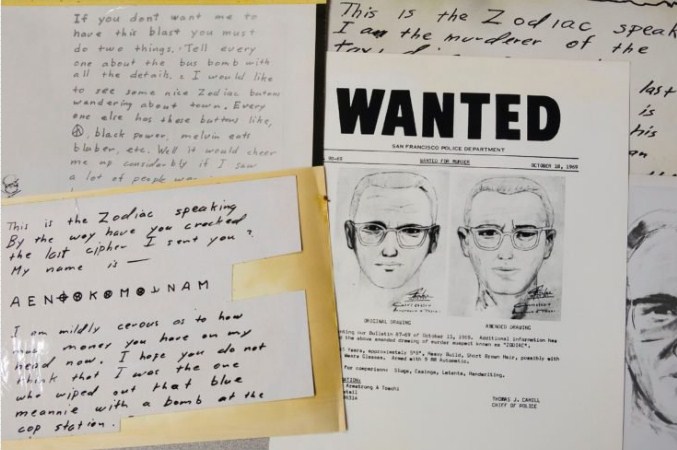 If you dont want me to
have this blast you must
do two things. Tell every
one about the bus bomb with
all the details. I would like
to see some nice Zodiac butons
wandering about town. Every
one else has these buttons like,
black power, melvin eats
bluber, etc. Well it would cheer
me up considerbly if I saw
a lot of people
This is the Zodiac speak
I am the murderer of the
last
is
his
an
WANTED
SAN FRANCISCO POLICE DEPARTMENT
90-69 WANTED FOR MURDER OCTOBER 18, 1969
ORIGINAL DRAWING AMENDED DRAWING
our Bulletin 87-69 of October 13, 1969. Additional information has
the above amended drawing of murder suspect known as "ZODIAC".
years, approximately 5'8", Heavy Build, Short Brown Hair, possibly with
Wears Glasses. Armed with 9 MM Automatic.
for comparison: Slugs, Casings, Latents, Handwriting.
Armstrong & Toschi
THOMAS J. CAHILL
CHIEF OF POLICE
This is the Zodiac speaking
By the way have you cracked
the last cipher I sent you?
My name is —
A E N ⊕ K M N A M
I am mildly cerous as to how
much money you have on my
head now. I hope you do not
think that I was the one
who wiped out that blue
meannie with a bomb at the
cop station.